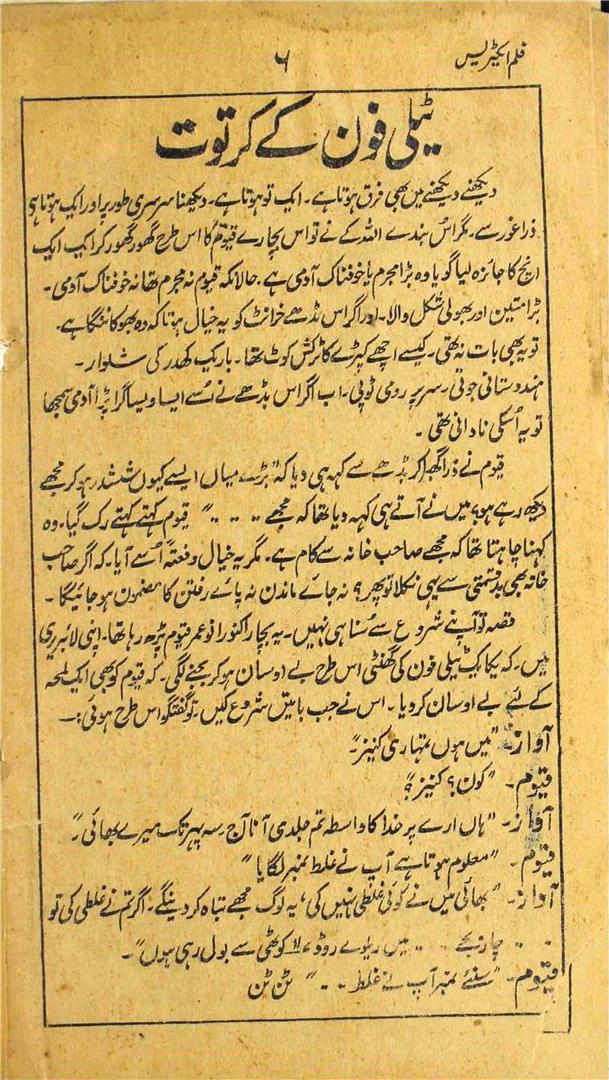 فلم ایکٹریس
۶
ٹیلی فون کے کرتوت
دیکھنے دیکھنے میں بھی فرق ہوتا ہے۔ ایک تو ہوتا ہے۔ دیکھنا سرسری طور پر اور ایک ہوتا ہی
ذرا غور سے۔ مگر اُس بندے اللہ کے نے تو اس بچارے قیوم کا اس طرح گھور گھور کر ایک ایک
انچ کا جائزہ لیا گویا وہ بڑا مجرم یا خوفناک آدمی ہے۔ حالانکہ قیوم نہ مجرم تھا نہ خوفناک آدمی۔
بڑا متین اور بھولی شکل والا۔ اور اگر اس بڈھے خرانٹ کو یہ خیال ہوتا کہ وہ بھوکا ننگا ہے۔
تو یہ بھی بات نہ تھی۔ کیسے اچھے کپڑے کا ٹرکش کوٹ تھا۔ باریک کھدر کی شلوار۔
ہندوستانی جوتی۔ سر پر رومی ٹوپی۔ اب اگر اس بڈھے نے اُسے ایسا ویسا گرا پڑا آدمی سمجھا
تو یہ اُسکی نادانی تھی۔
قیوم نے ذرا گھبرا کر بڈھے سے کہہ ہی دیا کہ "بڑے میاں ایسے کیوں ششدر ہو کر مجھے
دیکھ رہے ہو؟ میں نے آتے ہی کہہ دیا تھا کہ مجھے ۔۔۔۔" قیوم کہتے کہتے رک گیا۔ وہ
کہنا چاہتا تھا کہ مجھے صاحب خانہ سے کام ہے۔ مگر یہ خیال دفعتہً اُسے آیا۔ کہ اگر صاحب
خانہ بھی بدقسمتی سے یہی نکلا تو پھر؟ نہ جائے ماندن نہ پائے رفتن کا مضمون ہو جائیگا۔
قصہ تو آپنے شروع سے سُنا ہی نہیں۔ یہ بچارا کنوارا نو عمر قیوم پڑھ رہا تھا۔ اپنی لائبریری
میں۔ کہ یکایک ٹیلی فون کی گھنٹی اس طرح بے اوسان ہو کر بجنے لگی۔ کہ قیوم کو بھی ایک لمحہ
کے لئے بے اوسان کر دیا۔ اس نے جب باتیں شروع کیں۔ تو گفتگو اس طرح ہوئی:۔
آواز۔ "میں ہوں تمہاری کنیز"۔
قیوم۔ "کون؟ کنیز؟
آواز۔ "ہاں ارے پر خدا کا واسطہ تم جلدی آنا آج سہ پہر تک میرے بھائی۔"
قیوم۔ "معلوم ہوتا ہے آپ نے غلط نمبر لگایا"
آواز۔ "بھائی میں نے کوئی غلطی نہیں کی، یہ لوگ مجھے تباہ کر دینگے۔ اگر تم نے غلطی کی تو
۔۔ چار بجے ۔۔۔۔ میں ریلوے روڈ کوٹھی سے بول رہی ہوں"۔
قیوم۔ "سنئے نمبر آپ نے غلط ۔۔۔" ٹن ٹن